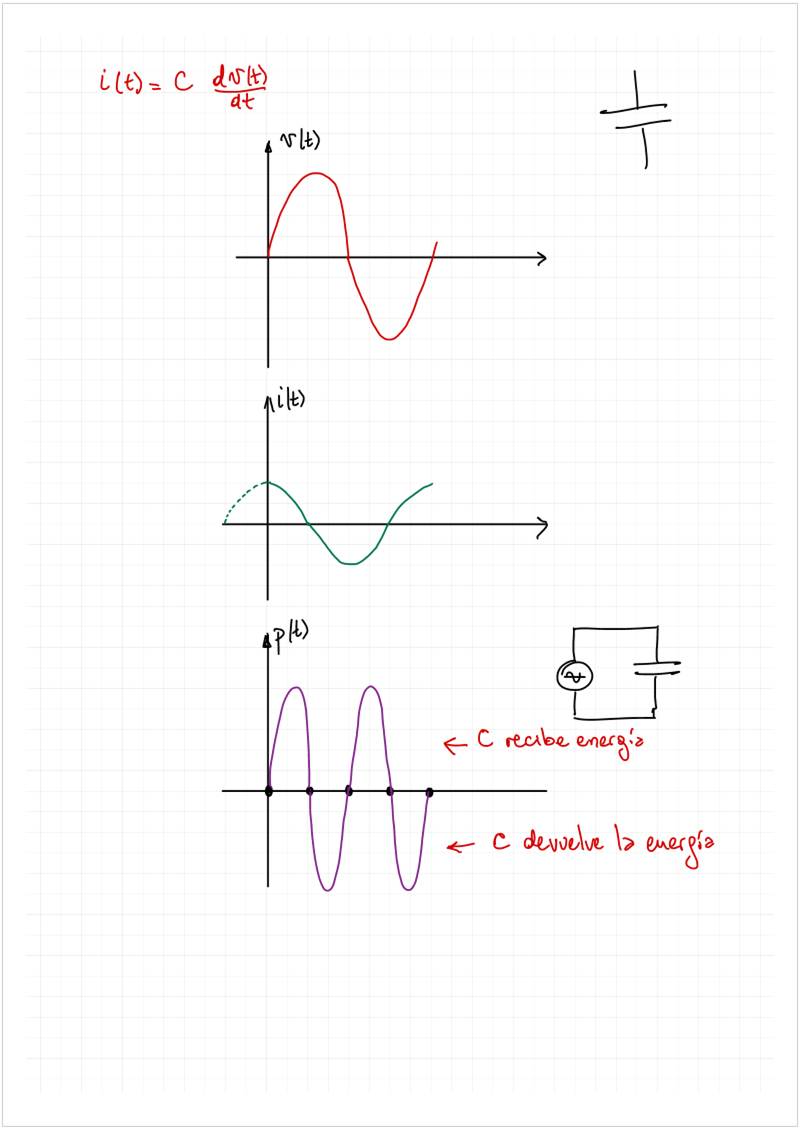 i(t) = C dv(t)/dt
v(t)
i(t)
p(t)
← C recibe energía
← C devuelve la energía